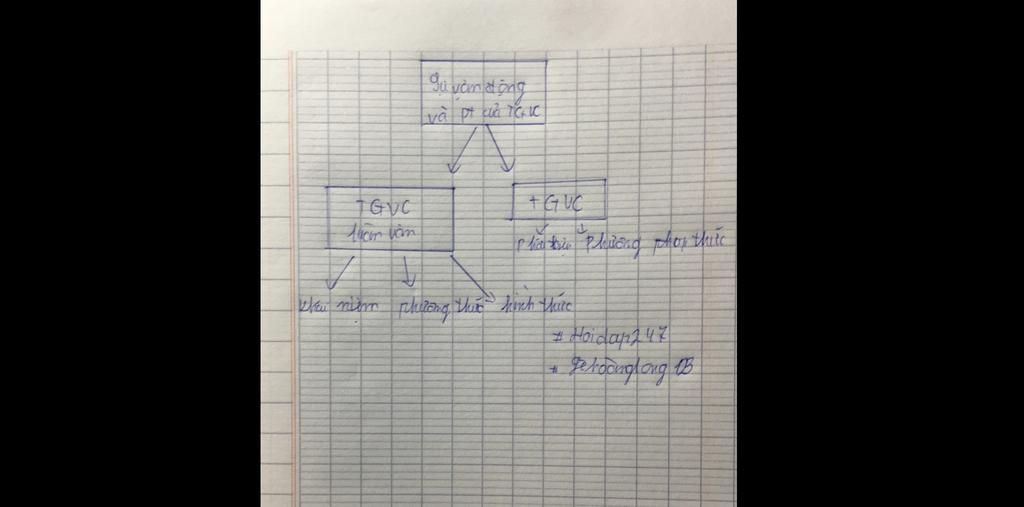 Sự vận động
và pt của TGVC
TGVC
TGVC
luôn vận
Phát triển Phương pháp thức
khái niệm phương thức hình thức
# Hoidap247
* Lehoànglong 05